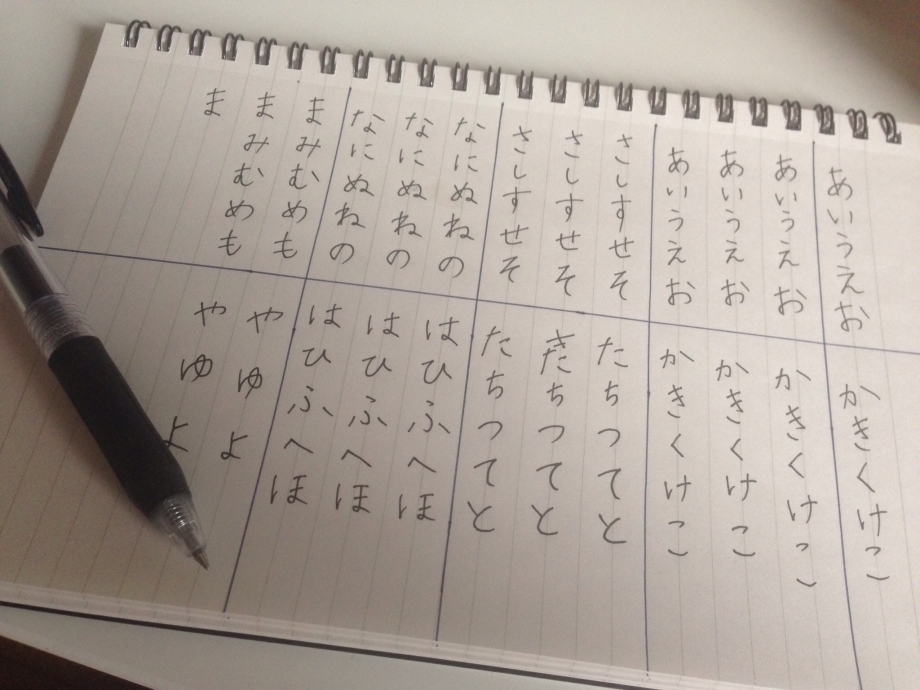 あいうえお
かきくけこ
あいうえお
あいうえお
あいうえお
かきくけこ
かきくけこ
かきくけこ
さしすせそ
さしすせそ
さしすせそ
たちつてと
きたちつてと
たちつてと
なにぬねの
なにぬねの
なにぬねの
はひふへほ
はひふへほ
はひふへほ
まみむめも
まみむめも
ま
やゆよ
やゆよ